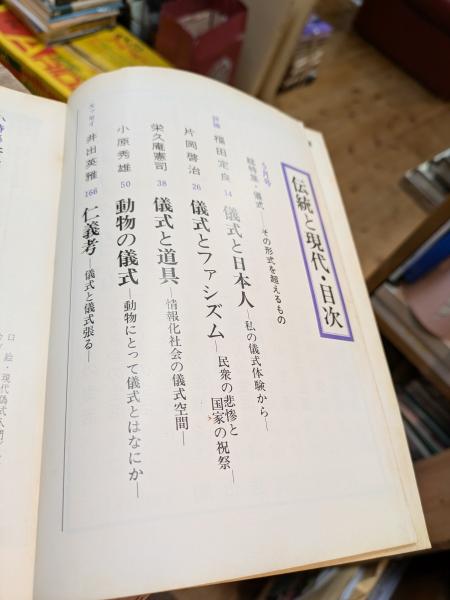 伝統と現代・目次
総特集・儀式――その形式を超えるもの
評論
福田定良 14 儀式と日本人―私の儀式体験から―
片岡啓治 26 儀式とファシズム―民衆の悲惨と
国家の祝祭―
栄久庵憲司 38 儀式と道具―情報化社会の儀式空間―
小原秀雄 50 動物の儀式―動物にとって儀式とはなにか―
エッセイ
井出英雅 166 仁義考―儀式と儀式張る―